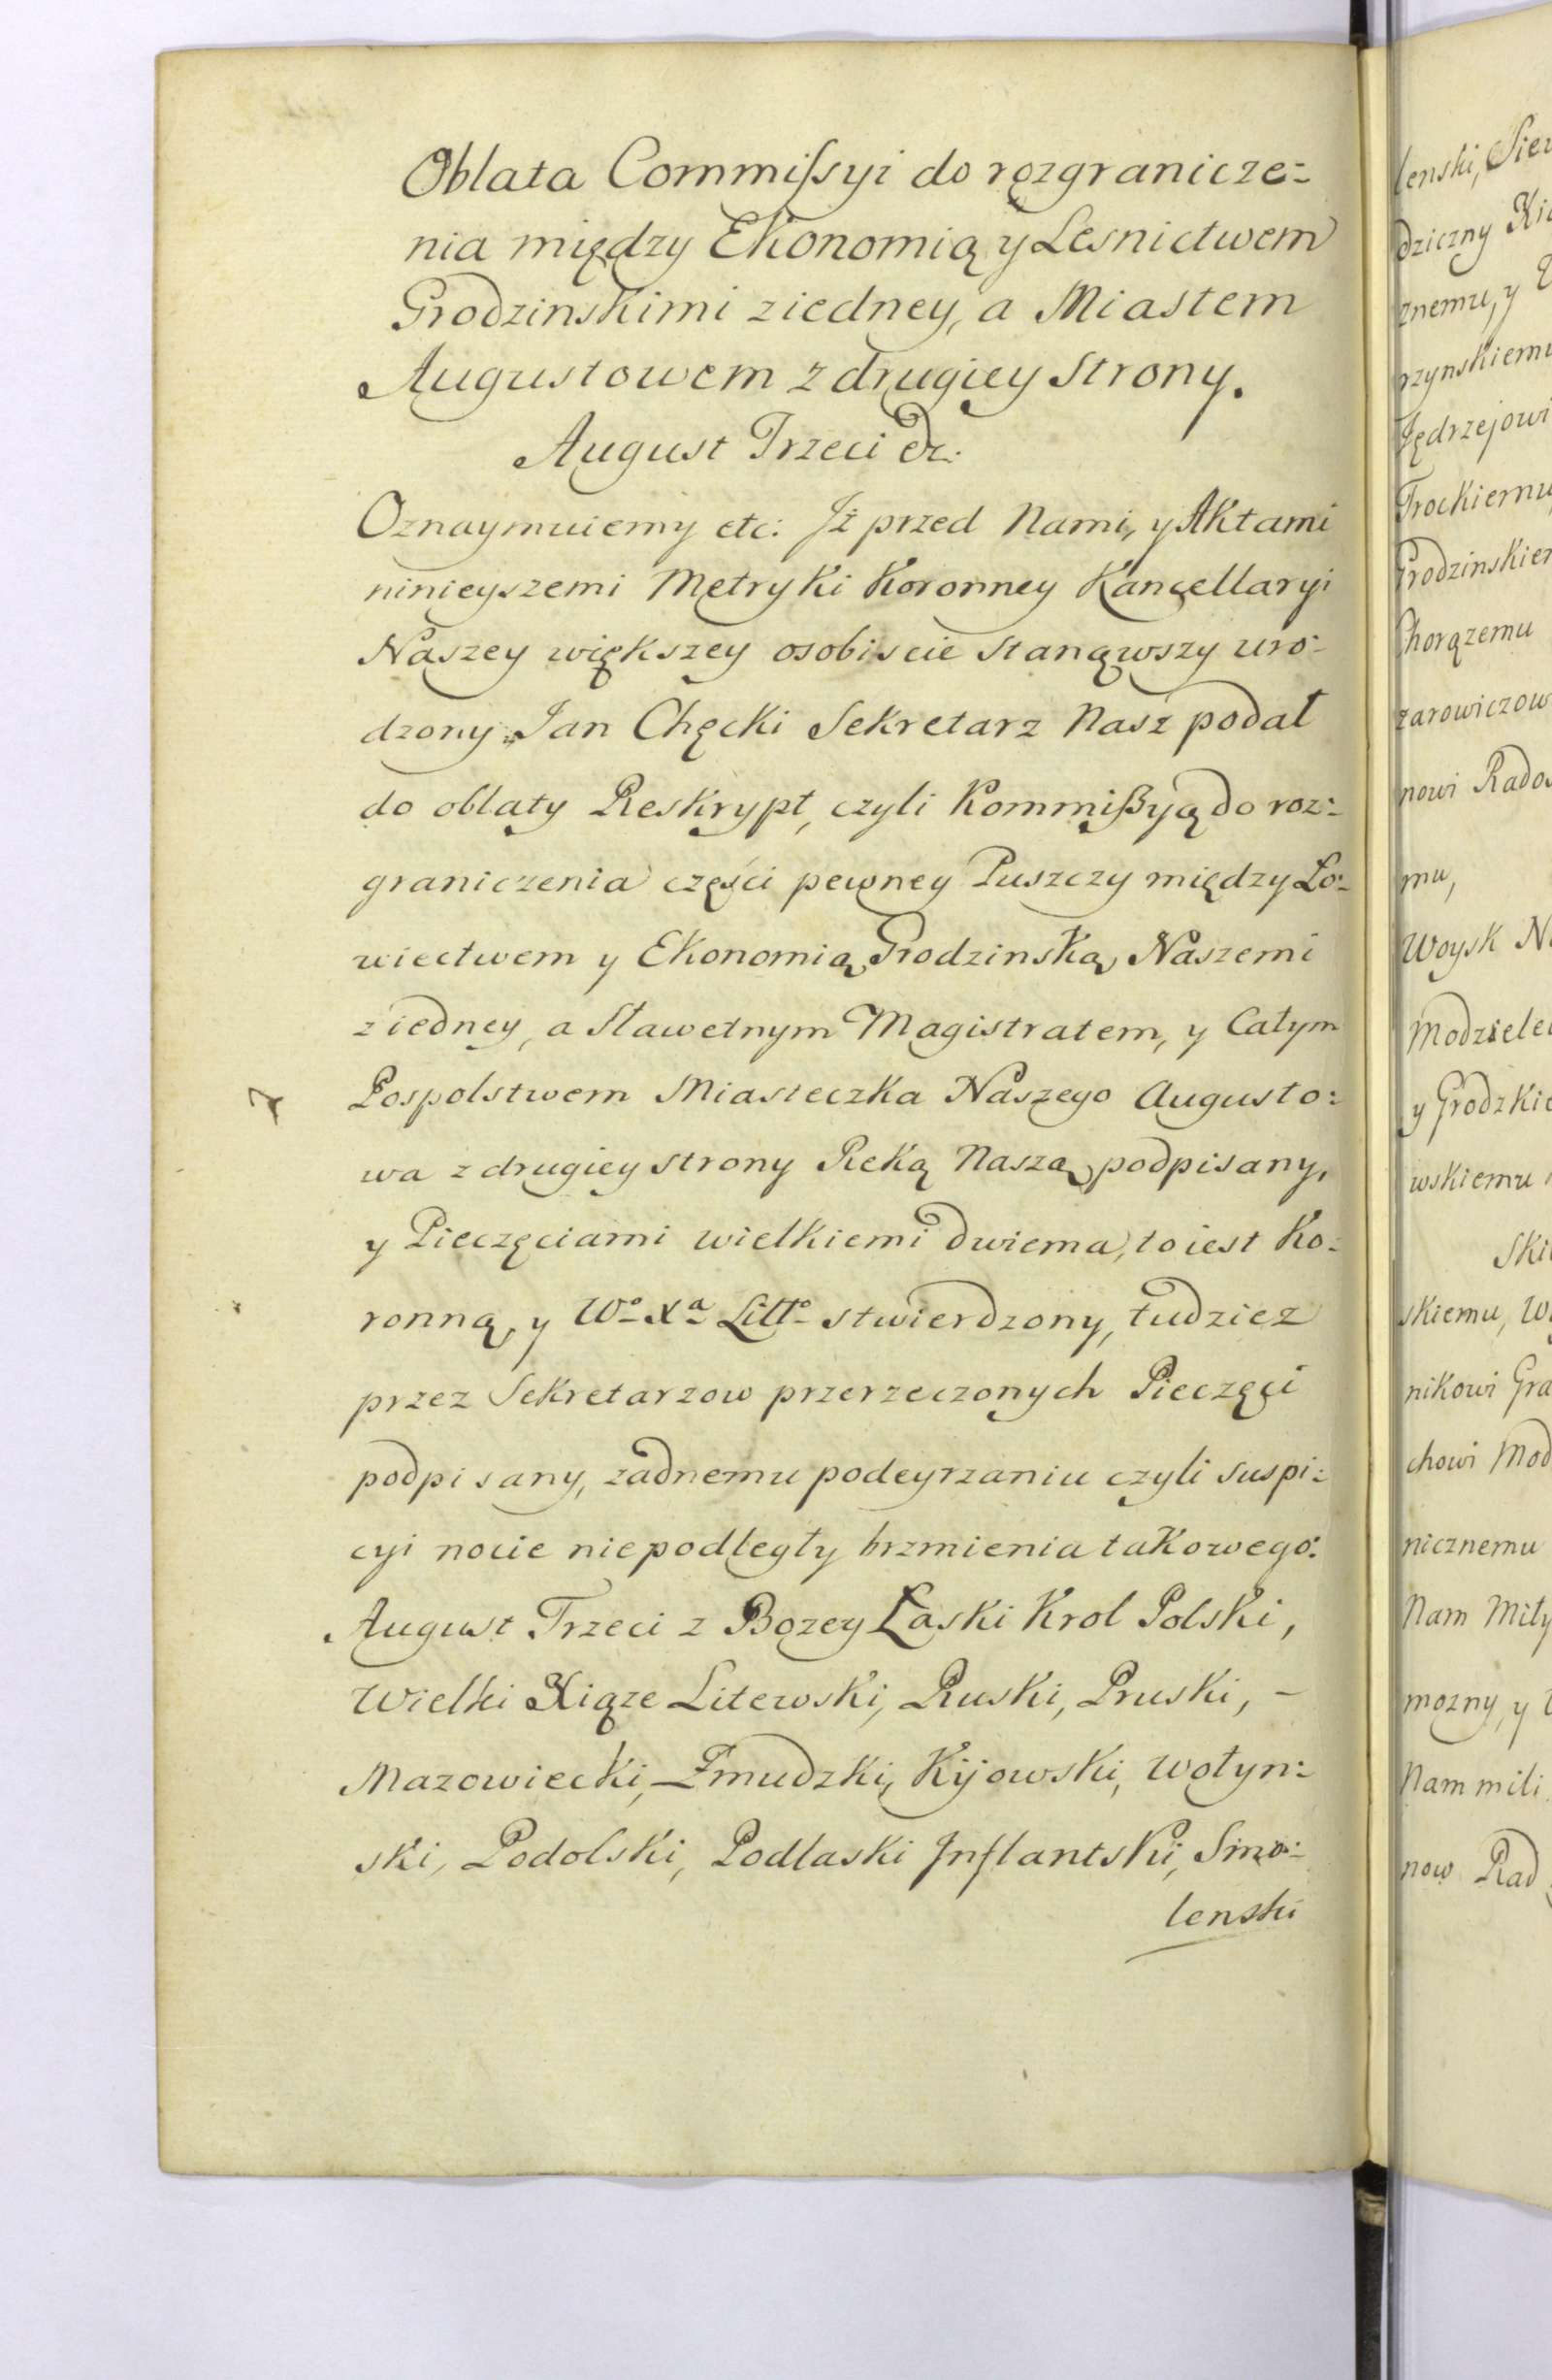 Oblata Commissyi do rozgranicze=
nia między Ekonomią y Lesnictwem
Grodzinskimi ziedney, a Miastem
Augustowem z drugiey Strony.
August Trzeci etc:
Oznaymuiemy etc: Jż przed Nami, y Aktami
ninieyszemi Metryki Koronney Kancellaryi
Naszey większey osobiscie stanąwszy uro=
dzony Jan Chęcki Sekretarz Nasz podał
do oblaty Reskrypt, czyli Kommißyą do roz=
graniczenia części pewney Puszczy między Ło=
wiectwem y Ekonomią Grodzinską Naszemi
ziedney, a Sławetnym Magistratem, y Całym
Pospolstwem Miasteczka Naszego Augusto=
wa z drugiey strony Ręką Naszą podpisany,
y Pieczęciami wielkiemi dwiema, to iest Ko=
ronną, y Wo Xa Litto stwierdzony, tudziez
przez Sekretarzow przerzeczonych Pieczęci
podpisany, zadnemu podeyrzaniu czyli suspi=
cyi nocie niepodległy brzmienia takowego:
August Trzeci z Bozey Łaski Krol Polski,
Wielki Xiąze Litewski, Ruski, Pruski, -
Mazowiecki, Zmudzki, Kijowski, Wołyn=
ski, Podolski, Podlaski Jnflantski, Smo=
lenski
lenski,
dziczny
znemu, y
rzynskiemu
Jędrzejowi
Trockiemu
Chorązemu
nowi
mu,
Woysk
y
wskiemu
skiemu,
nikowi
chowi
nicznemu
Nam Miły
mozny, y
Nam mili
now Rad